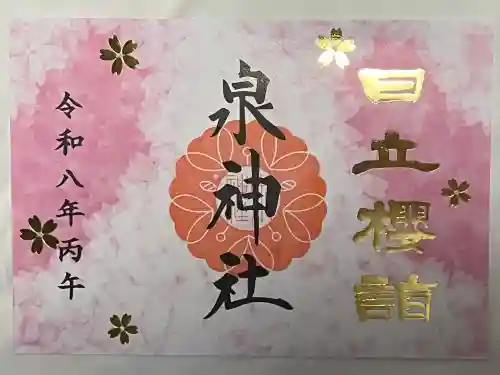 日立櫻詣
泉神社
令和八年丙午